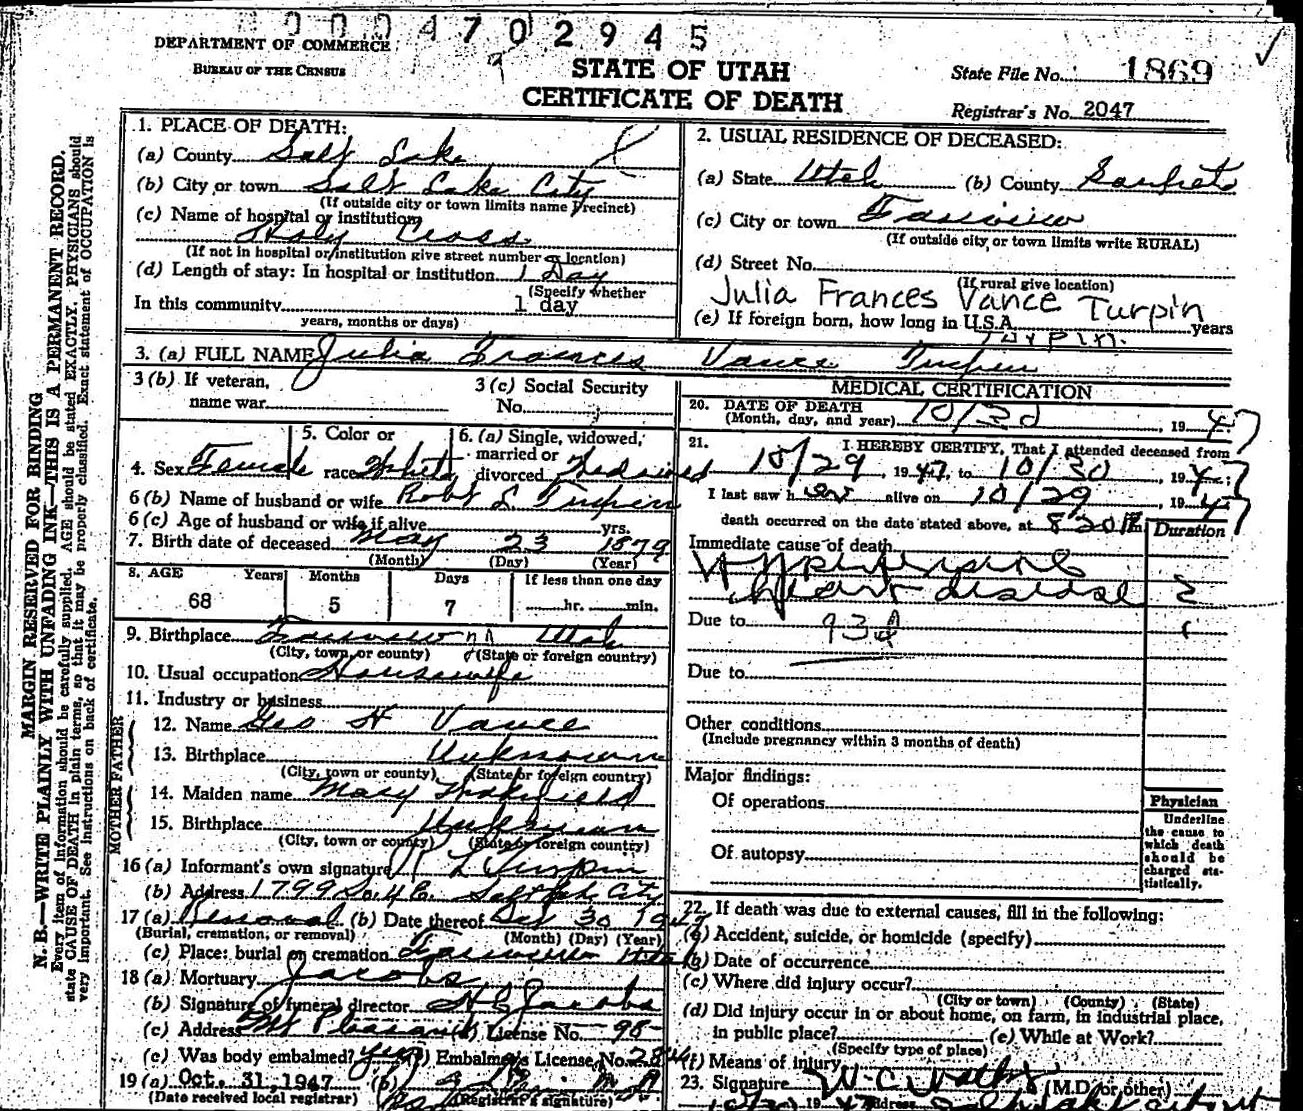 0004702945
DEPARTMENT OF COMMERCE
BUREAU OF THE CENSUS
STATE OF UTAH
CERTIFICATE OF DEATH
State File No. 1869
Registrar's No. 2047
MARGIN RESERVED FOR BINDING
N. B.—WRITE PLAINLY WITH UNFADING INK—THIS IS A PERMANENT RECORD.
Every item of information should be carefully supplied. AGE should be stated EXACTLY. PHYSICIANS should
state CAUSE OF DEATH in plain terms, so that it may be properly classified. Exact statement of OCCUPATION is
very important. See instructions on back of certificate.
1. PLACE OF DEATH:
(a) County Salt Lake
(b) City or town Salt Lake City
(If outside city or town limits name Precinct)
(c) Name of hospital or institution
Holy Cross
(If not in hospital or institution give street number or location)
(d) Length of stay: In hospital or institution 1 Day
(Specify whether
In this community 1 day
years, months or days)
2. USUAL RESIDENCE OF DECEASED:
(a) State Utah (b) County Sanpete
(c) City or town Fairview
(If outside city or town limits write RURAL)
(d) Street No.
(If rural give location)
Julia Frances Vance Turpin
(e) If foreign born, how long in U.S.A. years
Turpin.
3. (a) FULL NAME Julia Frances Vance Turpin
3 (b) If veteran,
name war
3 (c) Social Security
No.
4. Sex Female
5. Color or
race White
6. (a) Single, widowed,
married or
divorced Widowed
6 (b) Name of husband or wife Robt L Turpin
6 (c) Age of husband or wife if alive yrs.
7. Birth date of deceased May 23 1879
(Month) (Day) (Year)
8. AGE Years Months Days If less than one day
68 5 7 hr. min.
9. Birthplace Fairview Utah
(City, town, or county) (State or foreign country)
10. Usual occupation Housewife
11. Industry or business
FATHER
12. Name Geo H Vance
13. Birthplace Unknown
(City, town or county) (State or foreign country)
MOTHER
14. Maiden name Mary
15. Birthplace Unknown
(City, town or county) (State or foreign country)
16 (a) Informant's own signature R L Turpin
(b) Address 1799 So. 4 E. Salt Lk. City
17 (a) Removal (b) Date thereof 30 1947
(Burial, cremation, or removal) (Month) (Day) (Year)
(c) Place: burial or cremation Fairview Utah
18 (a) Mortuary Jacobs
(b) Signature of funeral director H C Jacobs
(c) Address Mt Pleasant (d) License No. 95
(e) Was body embalmed? yes (f) Embalmer's License No. 284
19 (a) Oct. 31, 1947 (b)
(Date received local registrar) (Registrar's signature)
MEDICAL CERTIFICATION
20. DATE OF DEATH
(Month, day, and year) 10/30, 1947
21. I HEREBY CERTIFY, That I attended deceased from
10/29, 1947, to 10/30, 1947;
I last saw her alive on 10/29, 1947
death occurred on the date stated above, at 8 20 P m
Duration
Immediate cause of death
Hypertensive
heart disease 2
Due to 93d
Due to
Other conditions
(Include pregnancy within 3 months of death)
Major findings:
Of operations
Of autopsy
Physician
Underline
the cause to
which death
should be
charged sta-
tistically.
22. If death was due to external causes, fill in the following:
(a) Accident, suicide, or homicide (specify)
(b) Date of occurrence
(c) Where did injury occur?
(City or town) (County) (State)
(d) Did injury occur in or about home, on farm, in industrial place,
in public place? (e) While at Work?
(Specify type of place)
(f) Means of injury
23. Signature W. C. (M.D. or other)
10/30 1947 Address